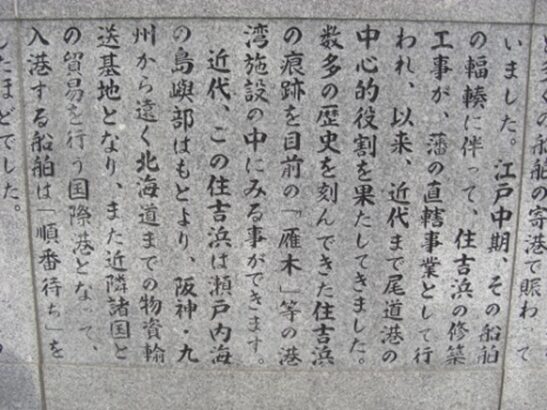 多くの船舶の寄港で賑わって
いました。江戸中期、その船舶
の輻輳に伴って、住吉浜の修築
工事が、藩の直轄事業として行
われ、以来、近代まで尾道港の
中心的役割を果たしてきました。
数多の歴史を刻んできた住吉浜
の痕跡を目前の「雁木」等の港
湾施設の中にみる事ができます。
近代、この住吉浜は瀬戸内海
の島嶼部はもとより、阪神・九
州から遠く北海道までの物資輸
送基地となり、また近隣諸国と
の貿易を行う国際港となって、
入港する船舶は「順番待ち」を
したほどでした。